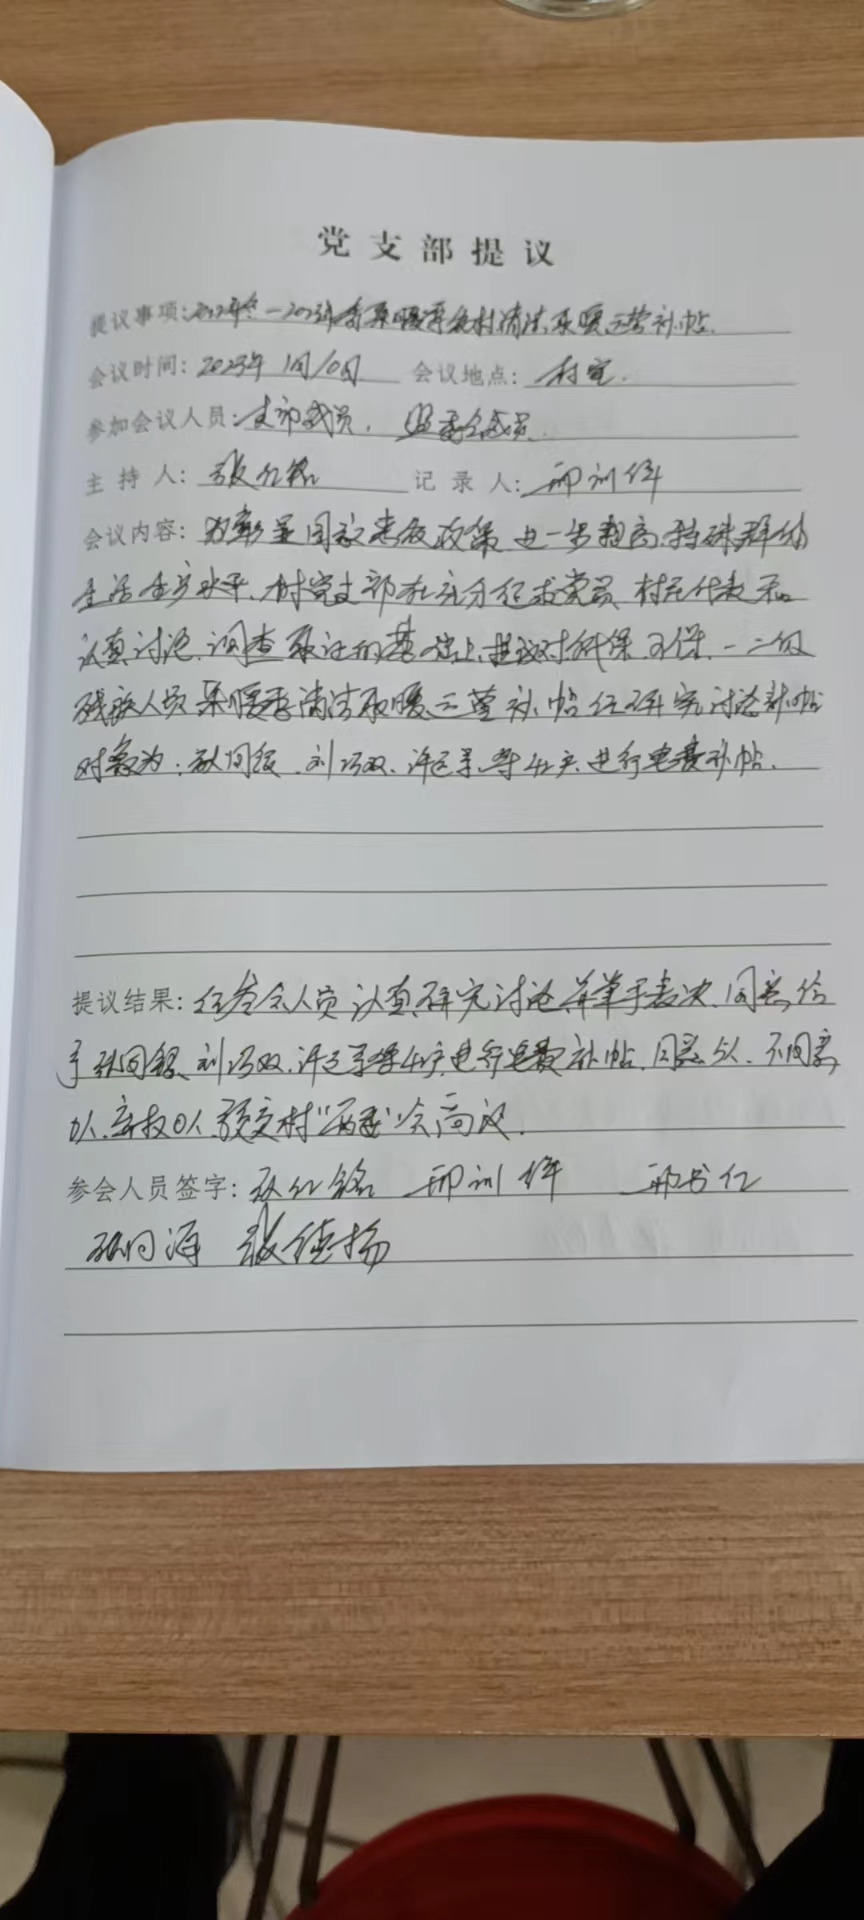 党支部提议
提议事项：2022年冬－2023年春采暖季我村清洁取暖运营补帖.
会议时间：2023年1月10日 会议地点：村室.
参加会议人员：支部成员、监委会成员.
主持人：张红铭 记录人：邢训绎
会议内容：为彰显国家惠民政策 进一步提高特殊群体
生活生产水平，村党支部在充分征求党员、村民代表和
认真讨论、调查取证的基础上，提议对低保、五保、一二级
残疾人员采暖季清洁取暖运营补帖经研究讨论补帖
对象为：张同银、刘巧双、许运景等42户，进行电费补帖.
提议结果：经参会人员认真研究讨论并举手表决，同意给
于张同银、刘巧双、许运景等42户进行电费补帖，同意5人、不同意
0人、弃权0人，预交村“两委”会商议.
参会人员签字：张红铭 邢训绎 邢书仁
张同海 张德扬